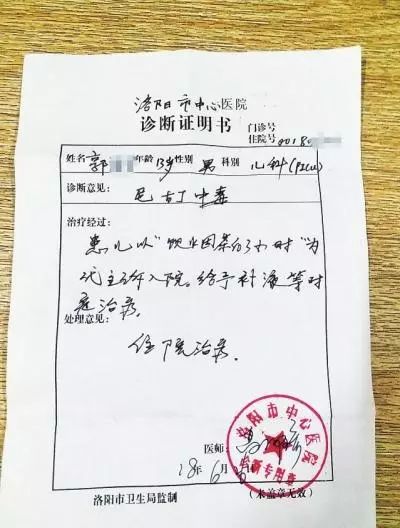 洛阳市中心医院
诊断证明书
门诊号
住院号 00180
姓名 郭 年龄 13岁 性别 男 科别 儿科(PICU)
诊断意见：
尼古丁中毒
治疗经过：
患儿以"饮 时"为
代主 入院。给予补液等对
症治疗。
处理意见：
住院治疗。
医师：
18年6月
洛阳市中心医院
诊断专用章
洛阳市卫生局监制
(未盖章无效)